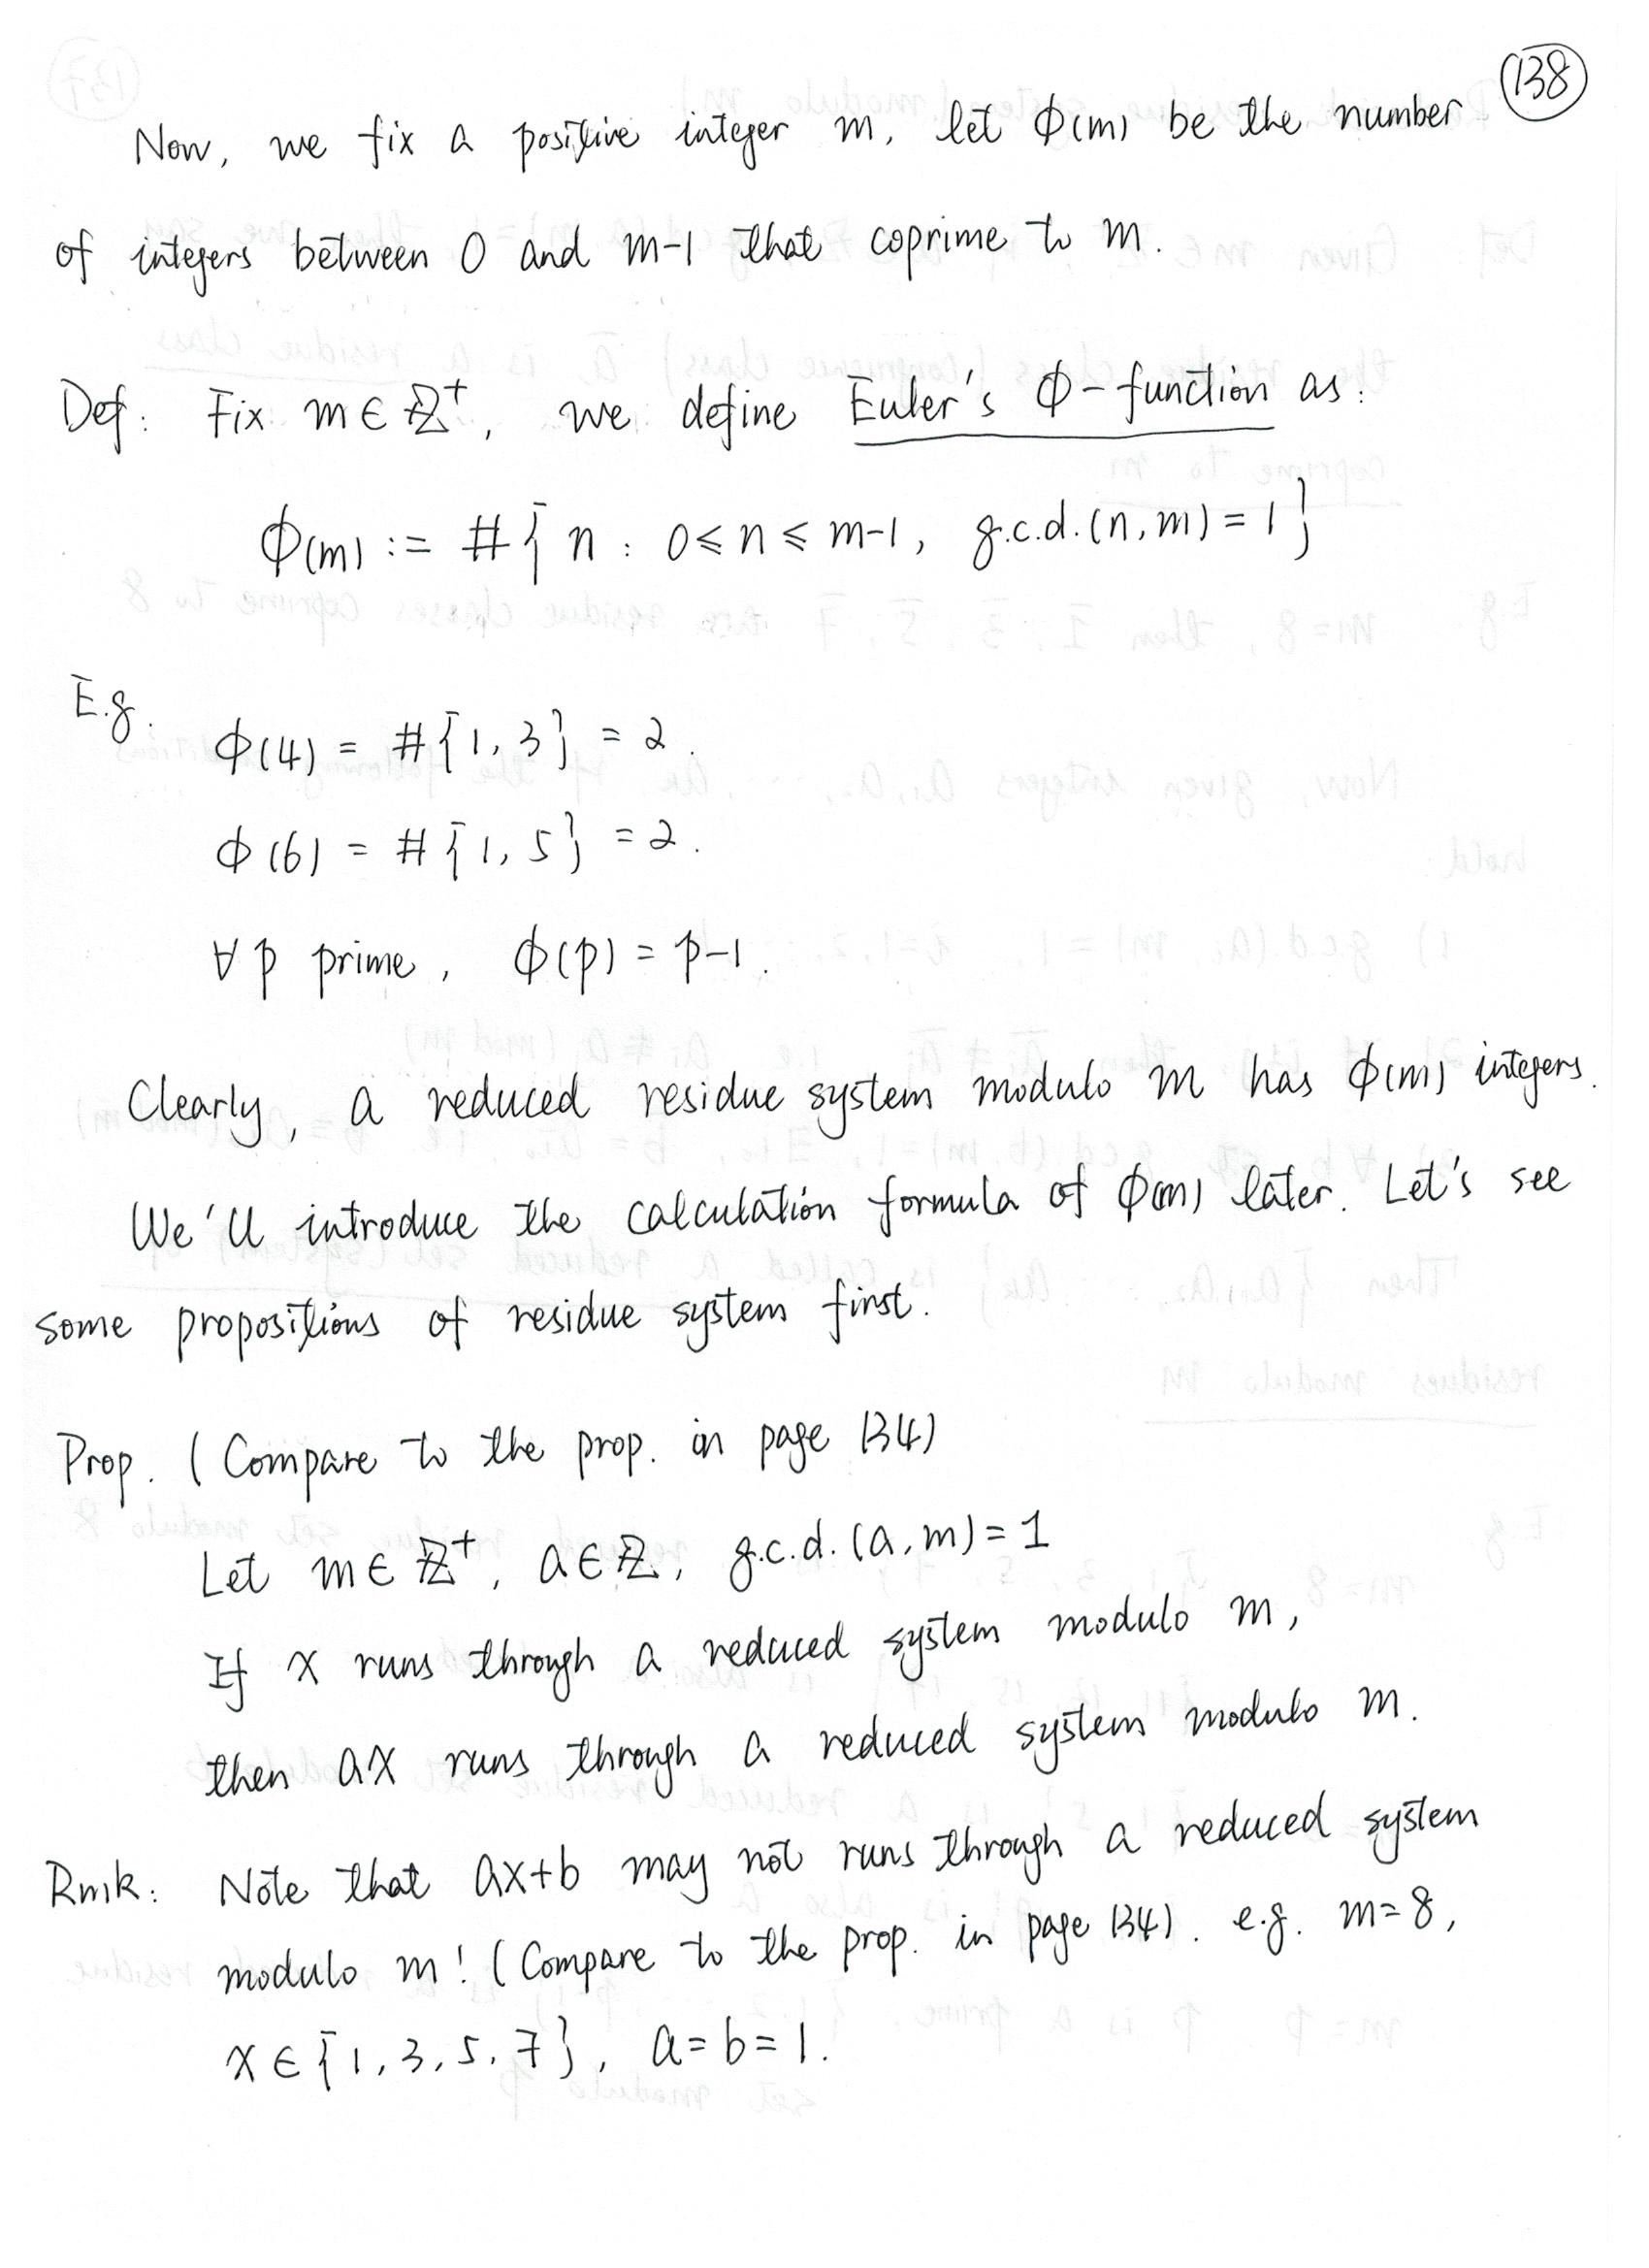 138
Now, we fix a positive integer m, let ϕ(m) be the number
of integers between 0 and m-1 that coprime to m.
Def: Fix m∈ℤ⁺, we define Euler's ϕ-function as:
ϕ(m) := #{ n : 0⩽n⩽m-1, g.c.d.(n,m)=1}
E.g. ϕ(4) = #{1,3} = 2.
ϕ(6) = #{1,5} = 2.
∀p prime, ϕ(p) = p-1.
Clearly, a reduced residue system modulo m has ϕ(m) integers.
We'll introduce the calculation formula of ϕ(m) later. Let's see
some propositions of residue system first.
Prop. (Compare to the prop. in page 134)
Let m∈ℤ⁺, a∈ℤ, g.c.d.(a,m)=1
If x runs through a reduced system modulo m,
then ax runs through a reduced system modulo m.
Rmk: Note that ax+b may not runs through a reduced system
modulo m! (Compare to the prop. in page 134). e.g. m=8,
x∈{1,3,5,7}, a=b=1.